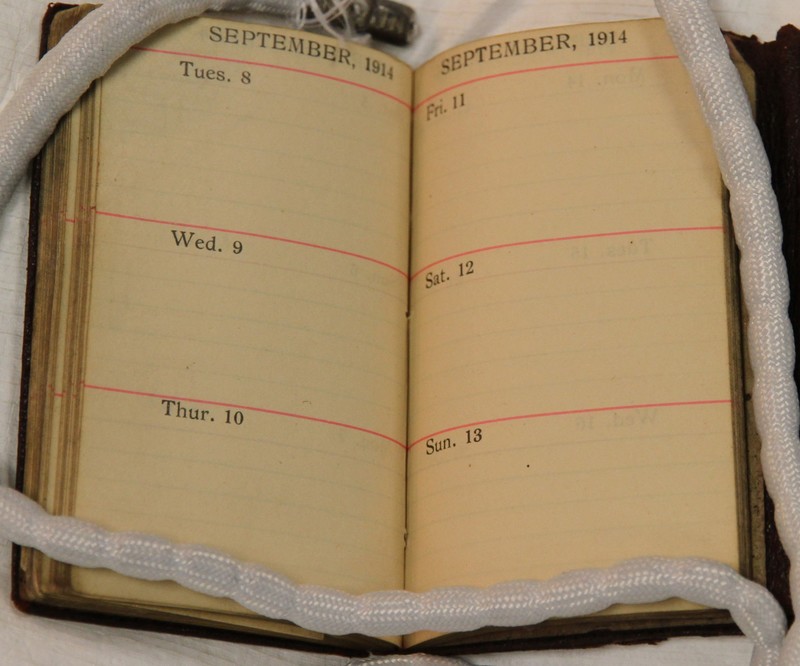 SEPTEMBER, 1914
Tues. 8
Wed. 9
Thur. 10
SEPTEMBER, 1914
Fri. 11
Sat. 12
Sun. 13